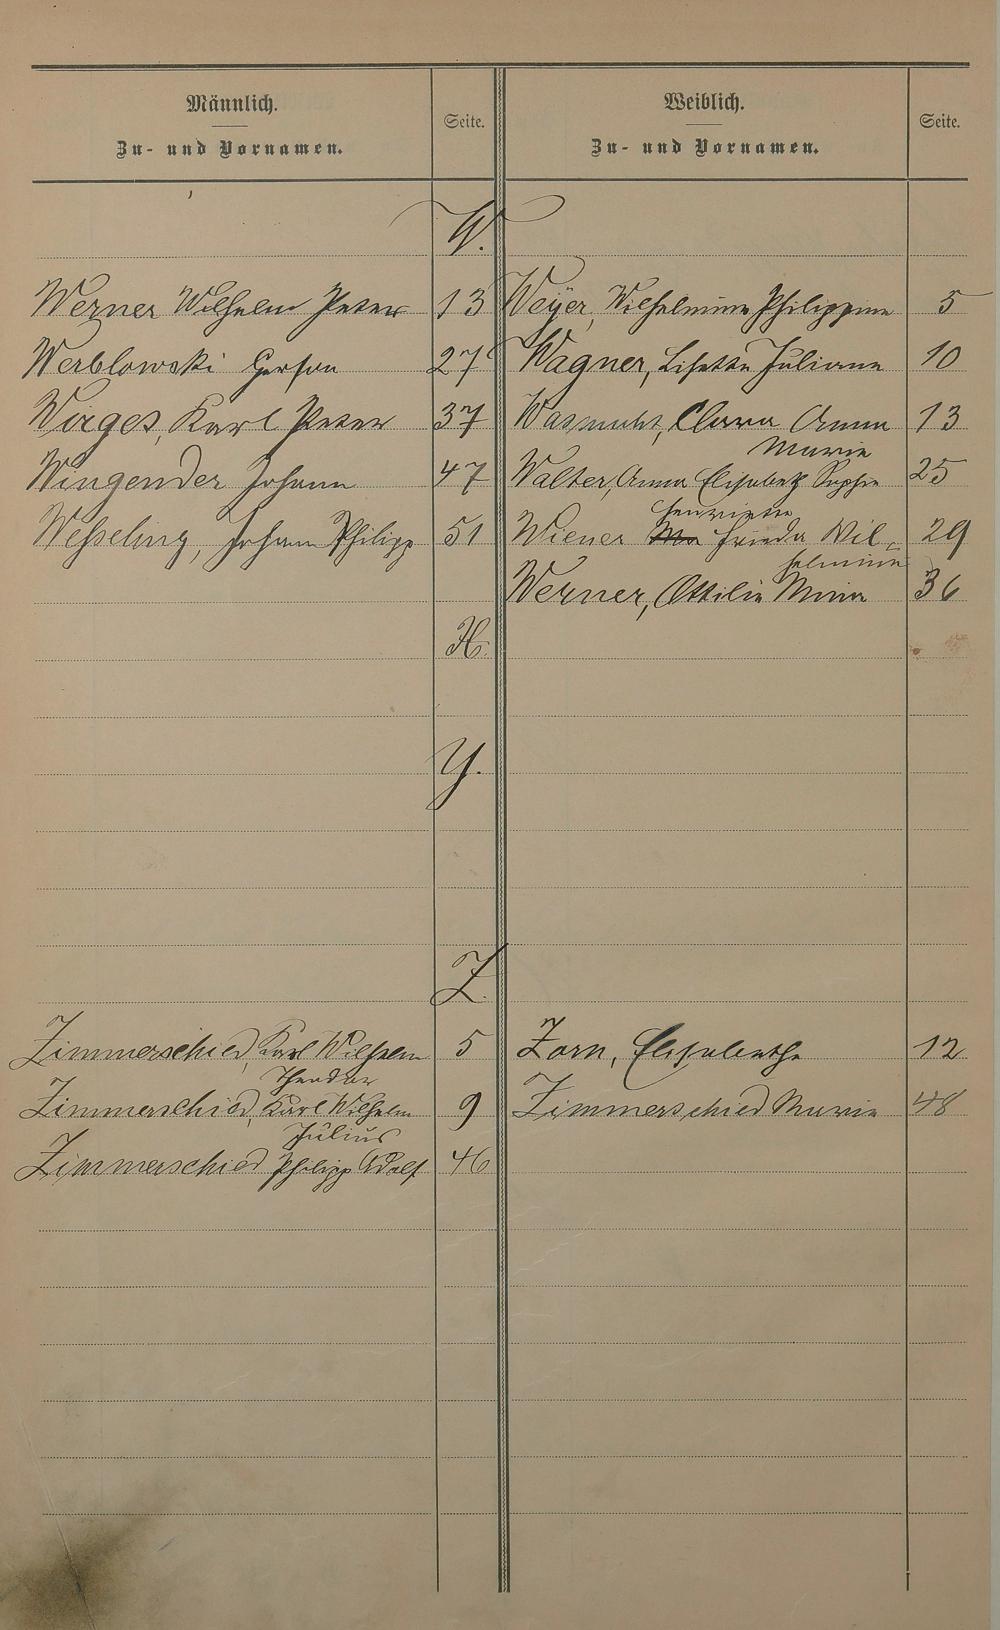 Männlich.
Zu- und Vornamen.
Seite.
Weiblich.
Zu- und Vornamen.
Seite.
W.
Werner Wilhelm Peter 13 Weyer, Wilhelmine Philippine 5
Werblowski Gerson 27 Wagner, Lisette Juliane 10
Wirges, Karl Peter 37 Wasmuht, Clara Anna 13
Marie
Wingender Johann 47 Walter, Anna Elisabeth Sophie 25
Henriette
Wesseling, Johann Philipp 51 Wiener Ma Frieda Wil- 29
helmine
Werner, Ottilie Mina 36
X.
Y.
Z.
Zimmerschied, Karl Wilhelm 5 Zorn, Elisabetha 12
Theodor
Zimmerschied, Karl Wilhelm 9 Zimmerschied Marie 48
Julius
Zimmerschied Philipp Adolf 46